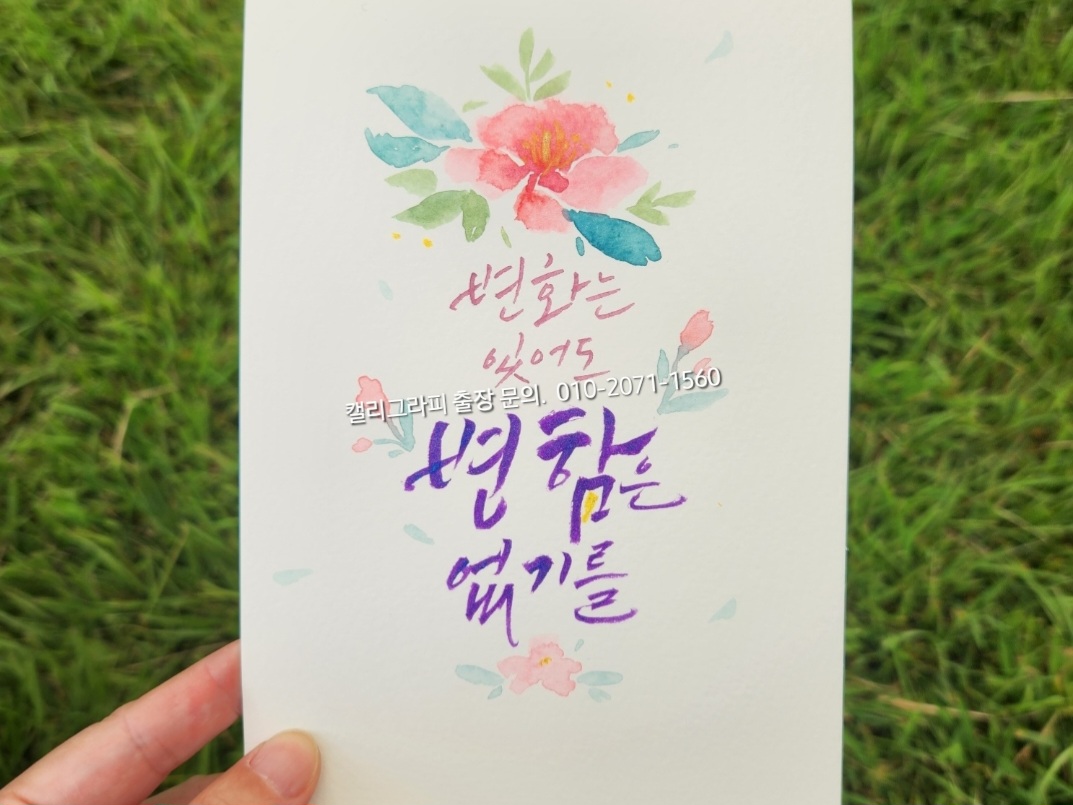 변화는
있어도
캘리그라피 출장 문의. 010-2071-1560
변함은
없기를